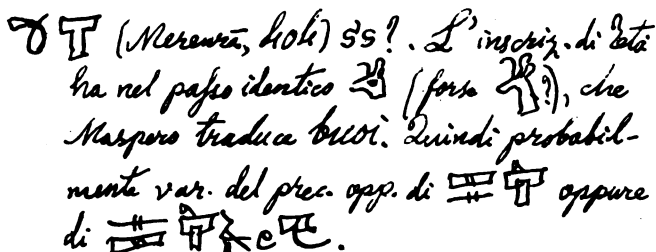 (Merenrā, 606) šs?. L'inscriz. di Zeta
ha nel passo identico (forse ?), che
Maspero traduce buoi. Quindi probabil-
mente var. del prec. opp. di oppure
di e .